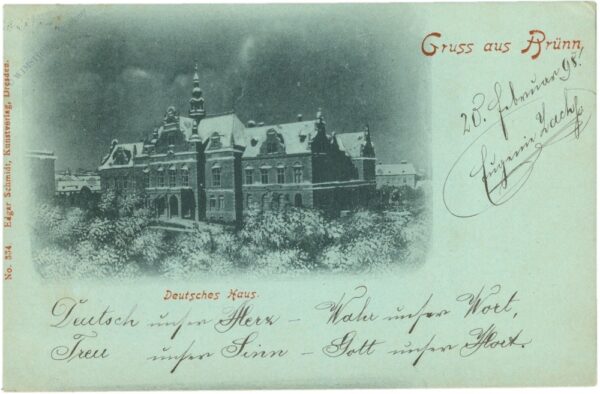 Gruss aus Brünn,
20. Februar 98.
Eugenie
No. 334 Edgar Schmidt, Kunstverlag, Dresden.
Deutsches Haus.
Deutsch unser Herz – Wahr unser Wort,
Treu unser Sinn – Gott unser Hort.